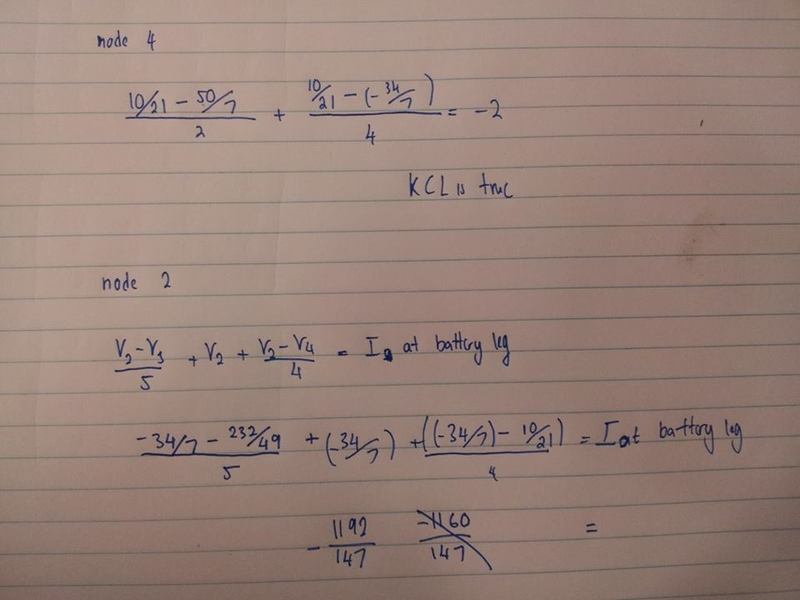 node 4
10/21 - 50/7 / 2 + 10/21 - (-34/7) / 4 = -2
KCL is true
node 2
V2-V3 / 5 + V2 + V2-V4 / 4 = I at battery leg
-34/7 - 232/49 / 5 + (-34/7) + ((-34/7) - 10/21) / 4 = I at battery leg
- 1192/147 -1160/147 =